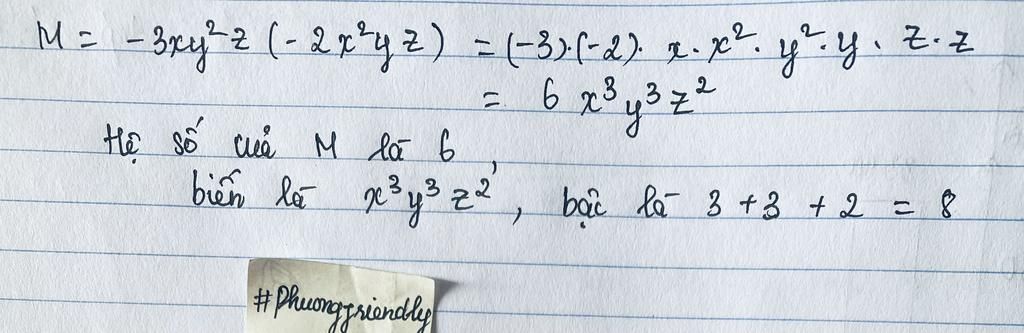 M = -3xy²z (-2x²yz) = (-3).(-2). x.x².y².y.z.z
= 6x³y³z²
Hệ số của M là 6,
biến là x³y³z², bậc là 3+3+2 = 8
#Phuongfriendly